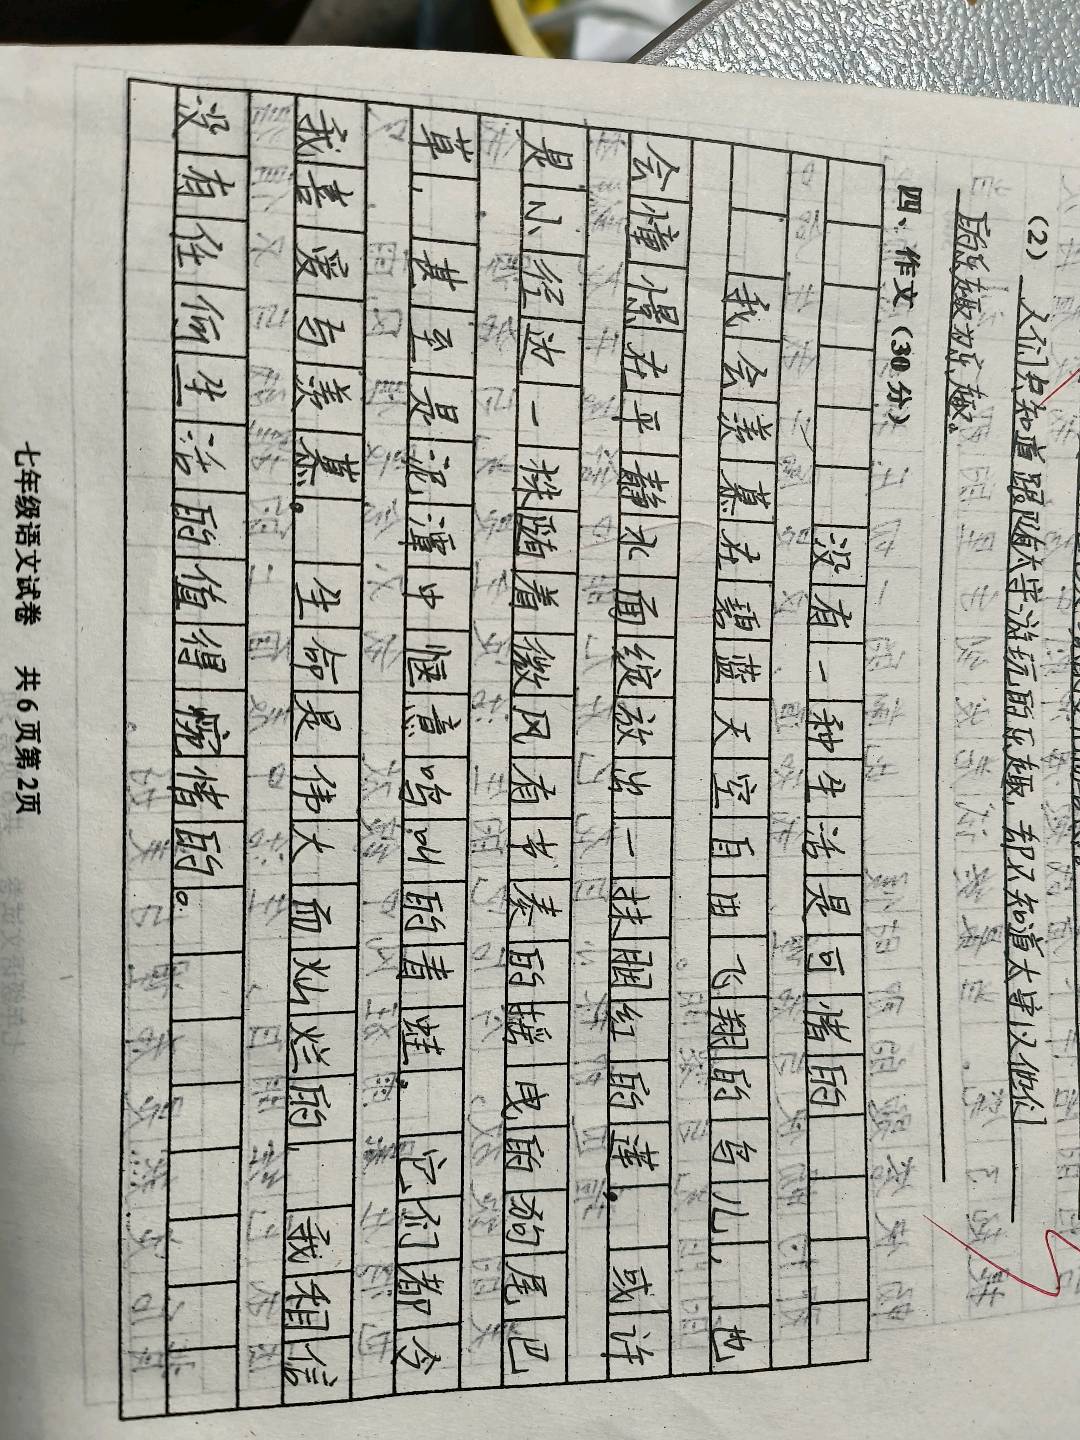 (2) 人们只知道跟随太守游玩的乐趣,却不知道太守以他们
的乐趣为乐趣。
四、作文(30分)
没有一种生活是可惜的
我会羡慕在碧蓝天空自由飞翔的鸟儿,也
会憧憬在平静水面绽放出一抹胭红的莲。或许
是小径边一株随着微风有节奏的摇曳的狗尾巴
草,甚至是泥潭中惬意鸣叫的青蛙。它们都令
我喜爱与羡慕。生命是伟大而灿烂的,我相信
没有任何生活的值得惋惜的。
七年级语文试卷 共6页第2页